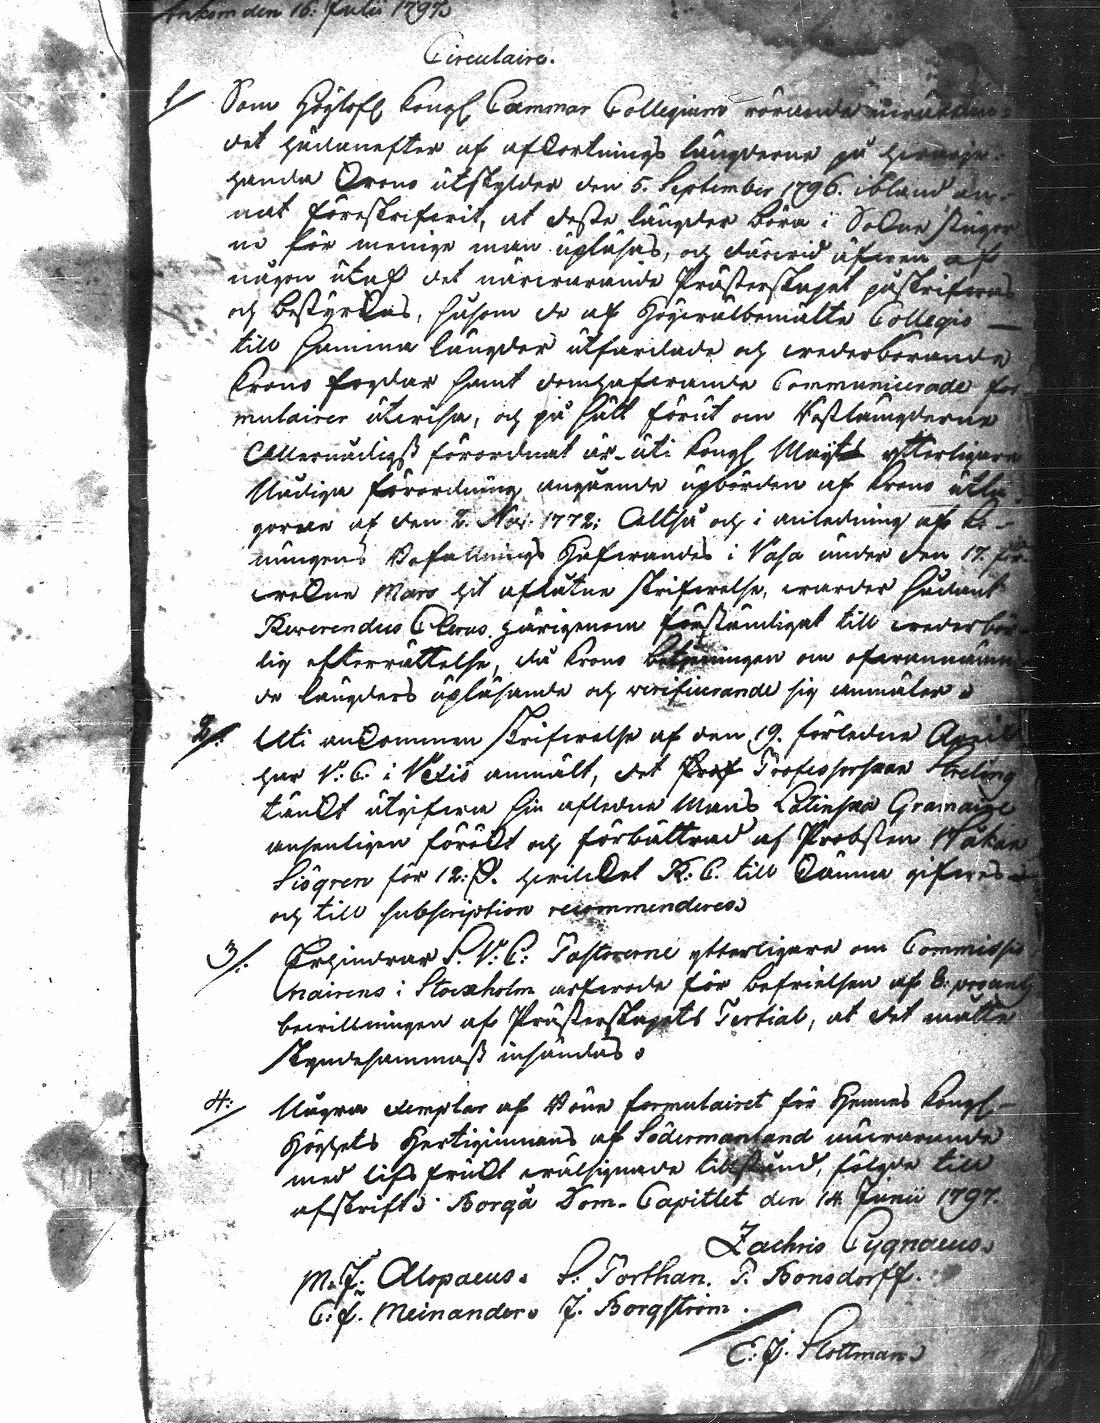 Ankom den 16. Julii 1797.
Circulaire.
1/ Som Höglofl Kongl Cammar Collegium rörande
det hädanefter af afkortnings längderne på hvarje-
handa Krono utskylder den 5. September 1796. ibland an-
nat föreskrifvit, at desse längder böra i Sokne stugor
ne för menige man upläsas, och därvid äfven af
någon utaf det närvarande Prästerskapet påskrifvas
och bestyrkas, såsom de af Högvälbemälte Collegio —
till samma längder utfärdade och vederbörande
Krono fogdar samt domhafvande Communicerade for-
mulairer utvisa, och på sätt förut om Restlängderne
Allernådigst förordnat är uti Kongl Mayts ytterligare
Nådiga förordning angående upbörden af Krono utla-
gorne af den 2. Nov. 1772; Altså och i anledning af Ko-
nungens Befallnings Hafvandes i Vasa under den 17. för-
vekne Mars hit aflåtne skrifvelse, varder sådant
Reverendus Clerus härigenom förständigat till vederbör-
lig efterrättelse, då Krono betjeningen om ofvannämn
de längders upläsande och verificerande sig anmäler.
2/: Uti ankommen skrifvelse af den 19. förledne April
har V: C. i Vexiö anmält, det Prof Professorskan Streling
tänkt utgifva sin afledne Mans Latinska Gramatice
ansenligen förökt och förbättrad af Probsten Håkan
Siögren för 12: ß. hvilket R: C. till känna gifves
och till subscription recommenderes.
3/: Erhindrar S. V: C: Pastorerne ytterligare om Commissio
nairens i Stockholm arfvode för befrielsen af 8. procents
bevillningen af Prästerskapets Tertial, at det måtte
skyndesammast insändas.
4:/ Några exemplar af Böne formulairet för Hennes Kongl-
Höghets Hertiginnans af Södermanland nuvarande
med lifs frukt välsignade tillstånd, följde till
afskrift. Borgå Dom-Capitlet den 14 Junii 1797.
Zachris Cygnaeus.
M. J: Alopaeus. S: Porthan. P. Bonsdorff.
C: J. Meinander. J. Borgström.
C. J. Slottman.